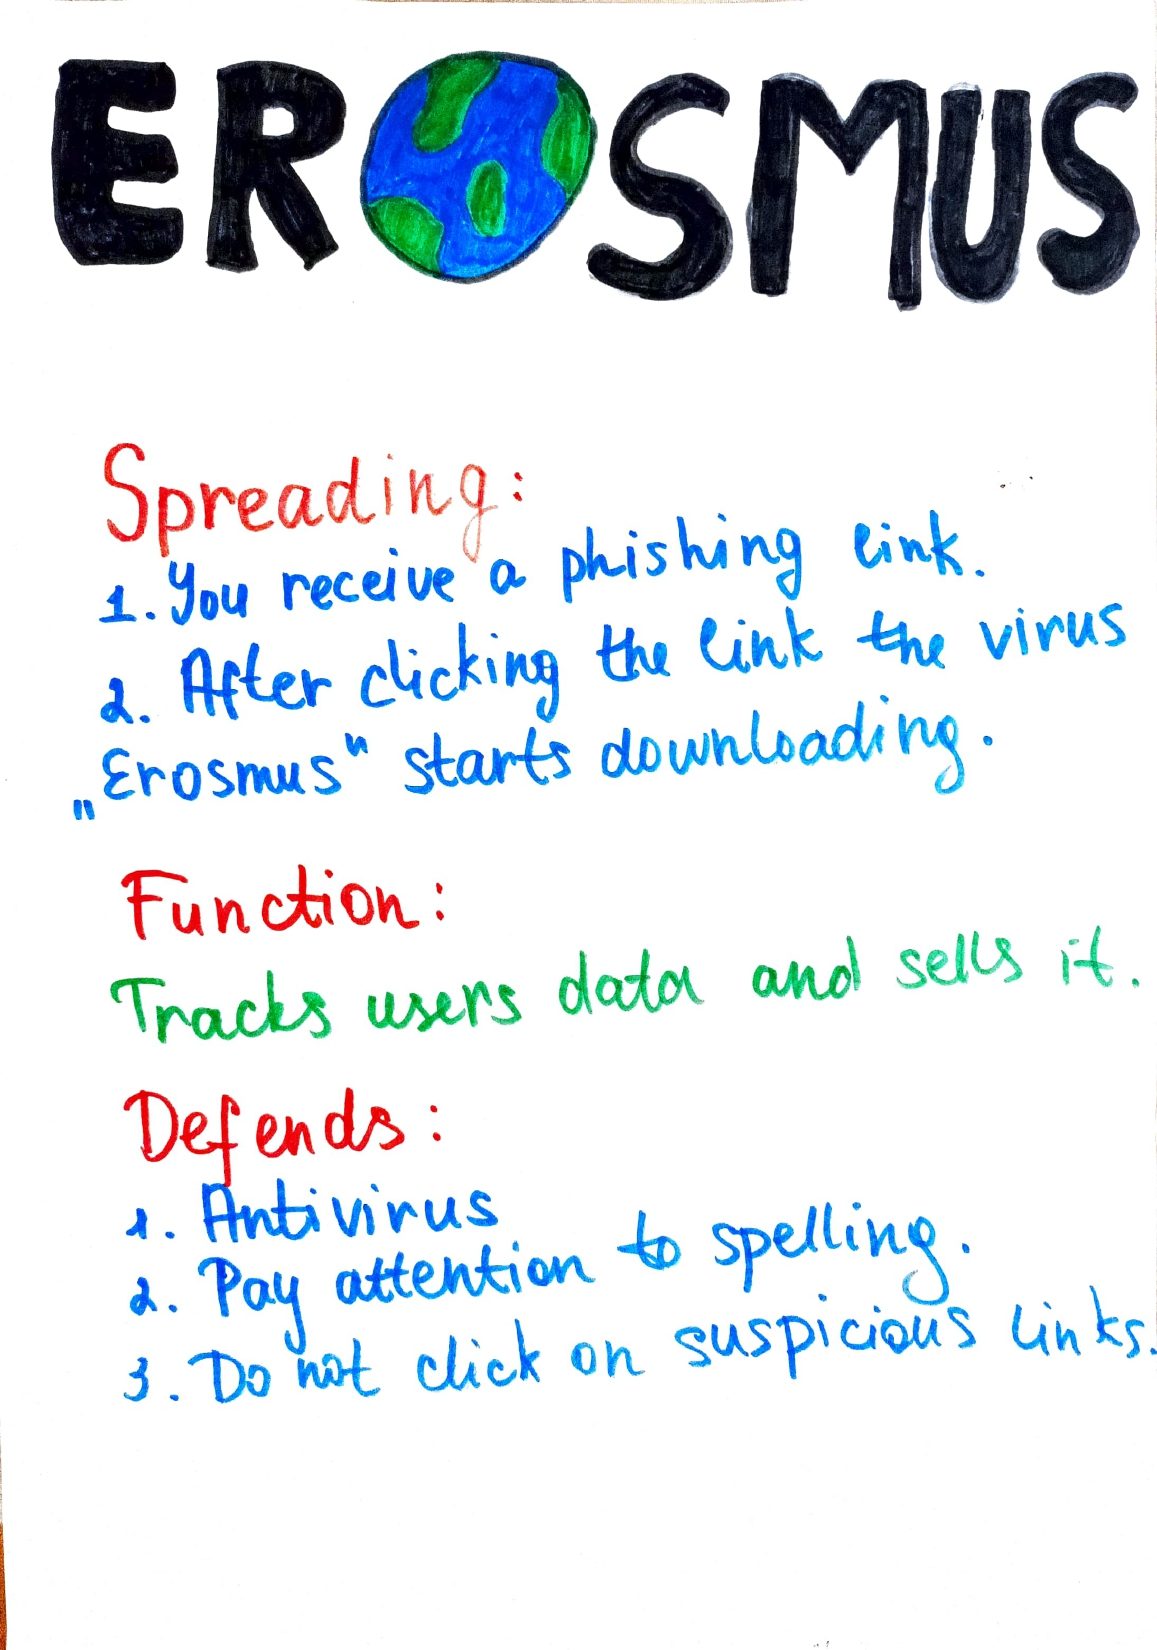 EROSMUS
Spreading:
1. You receive a phishing link.
2. After clicking the link the virus
„Erosmus" starts downloading.
Function:
Tracks users data and sells it.
Defends:
1. Antivirus
2. Pay attention to spelling.
3. Do not click on suspicious links.